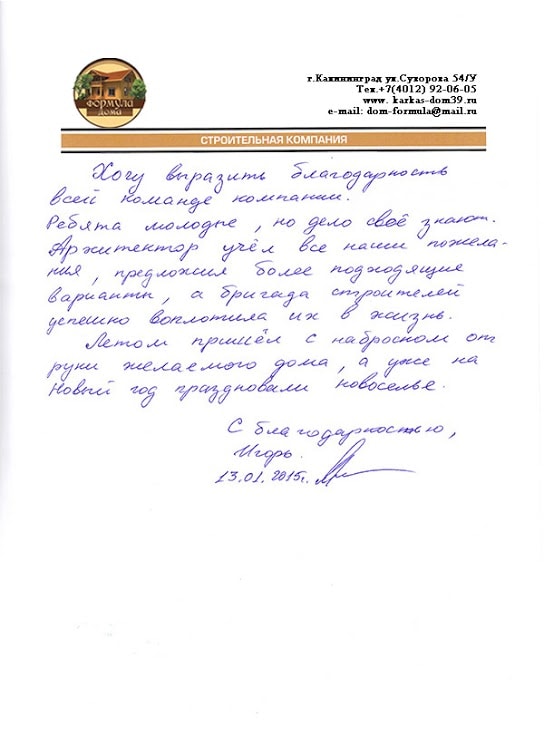 ФОРМУЛА
ДОМА
г.Калининград ул.Сухороха 54/У
Тел.+7(4012) 92-06-05
www. karkas-dom39.ru
e-mail: dom-formula@mail.ru
СТРОИТЕЛЬНАЯ КОМПАНИЯ
Хочу выразить благодарность
всей команде компании.
Ребята молодые, но дело своё знают.
Архитектор учёл все наши пожела-
ния, предложил более подходящие
варианты, а бригада строителей
успешно воплотила их в жизнь.
Летом пришёл с наброском от
руки желаемого дома, а уже на
Новый год праздновали новоселье.
С благодарностью,
Игорь.
13.01.2015г.